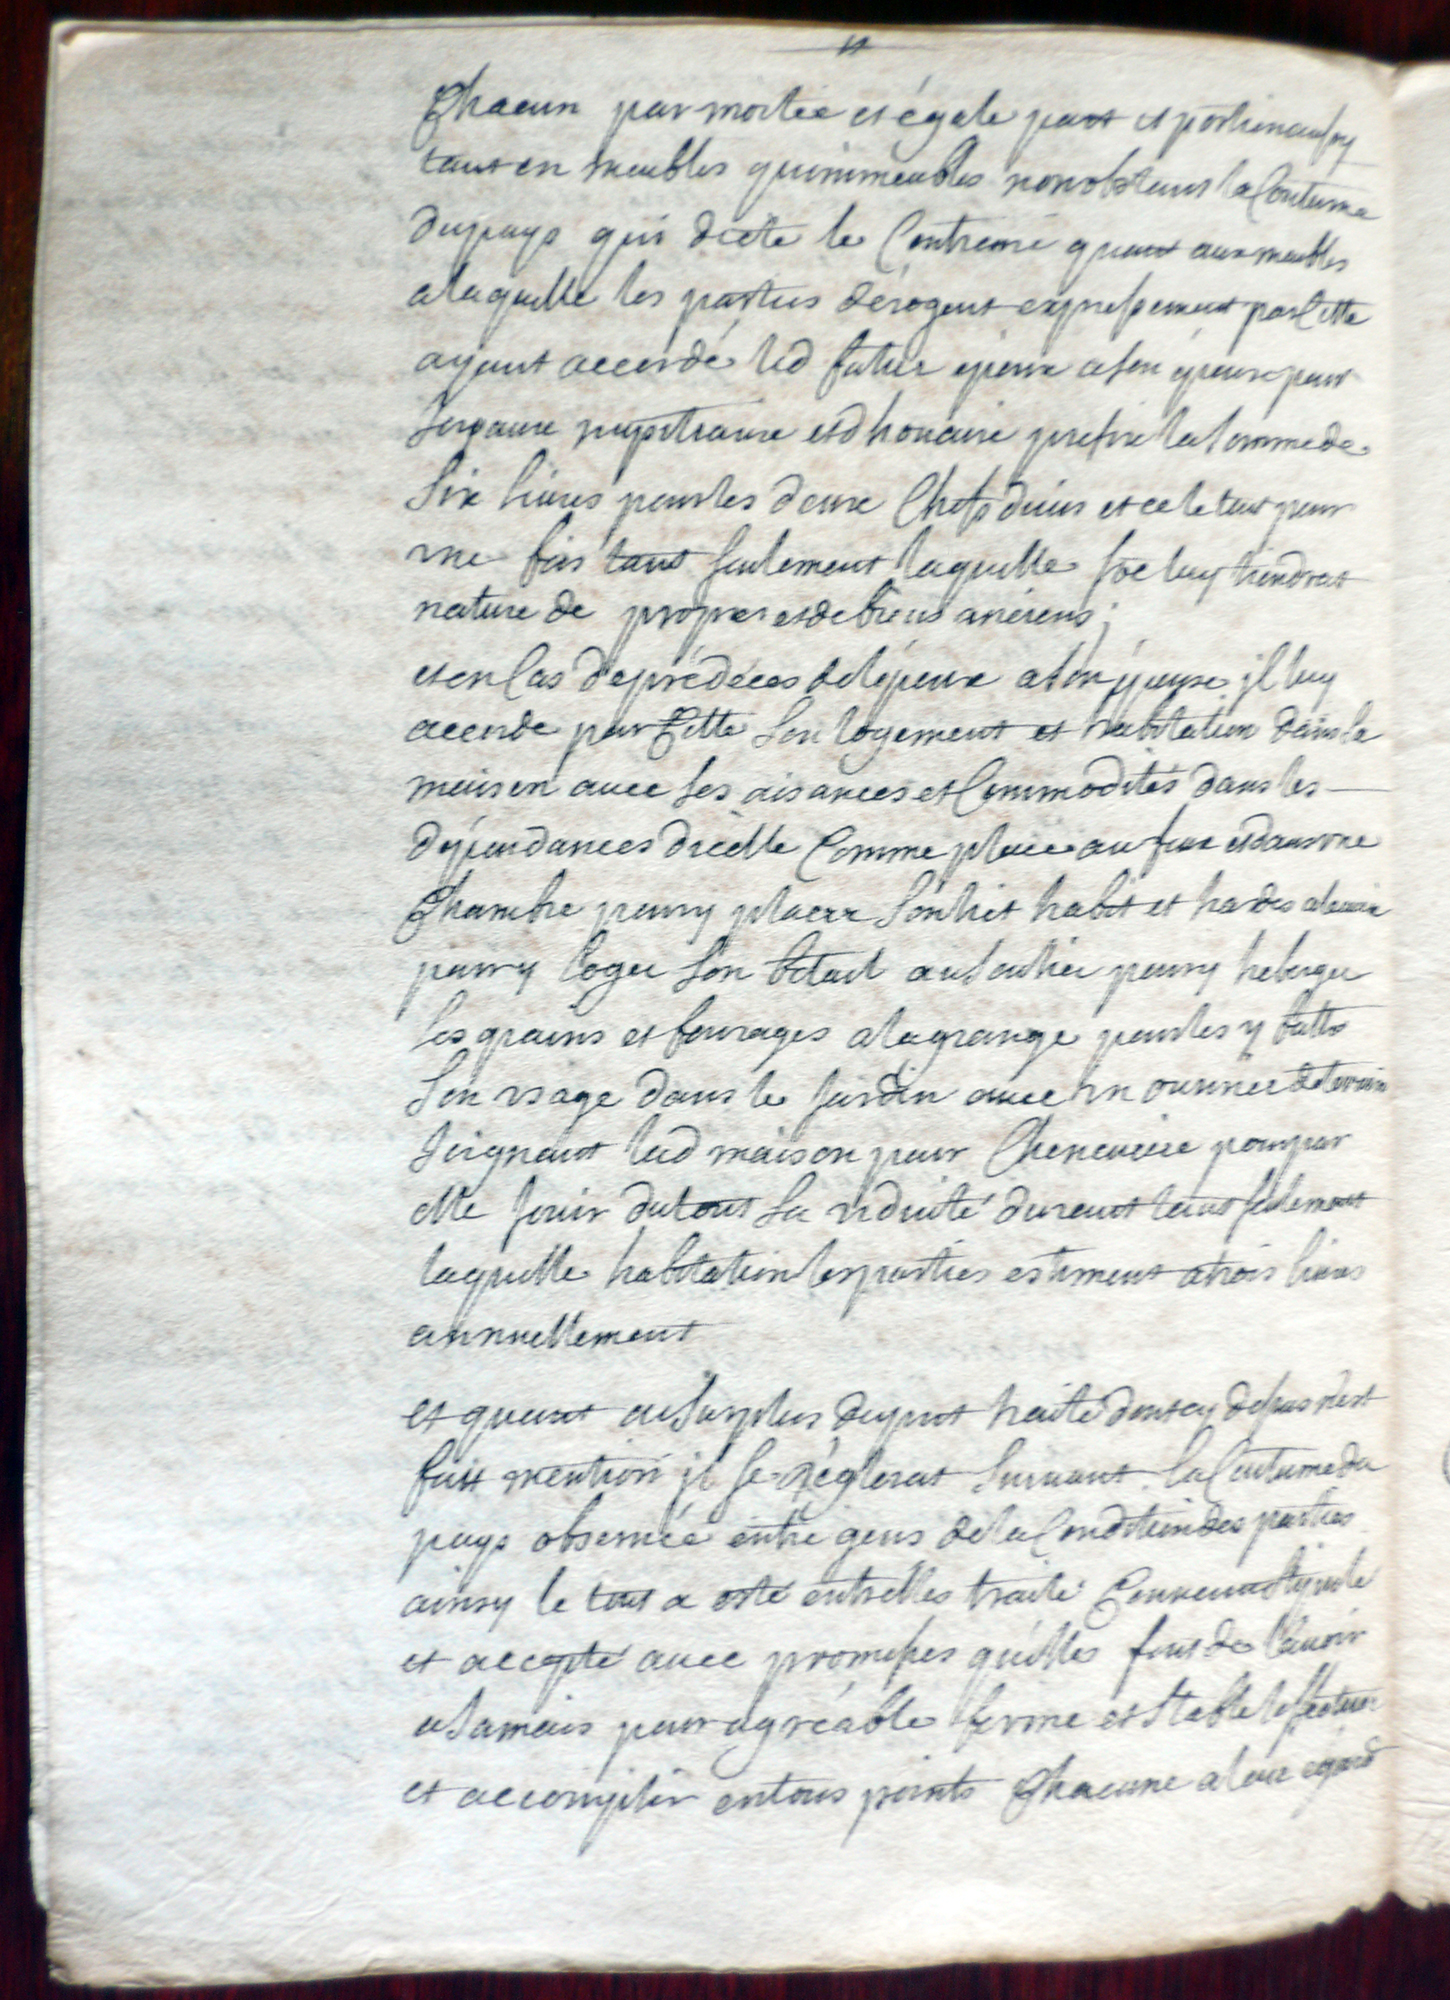 Chacun par moitié et égale part et portion aussy
tant en meubles qu'immeubles nonobstant la Coutume
du pays qui dicte le Contraire quant aux meubles
a laquelle les parties dérogent expressement par Cette
ayant accordé led futur époux a son épouse pour
et dhouaire prefix la somme de
Six livres pour les deux Chefs duins et ce le tout pour
vne fois tant seulement laquelle soe luy tiendrat
nature de propres et de biens aneiens ;
et en Cas de prédéces del époux a son épouse jl luy
accorde par Cette Son logement et habitation dans la
maison auec ses aisances et Commodités dans les
dépendances d'icelle Comme place au feux et dans vne
Chambre pour y placer Son lict habit et hardes
pour y loger Son bétail au Soulier pour y heberger
Ses grains et fourages a la grange pour les y battre
Son vsage dans le Jardin auec vn ouurieé de terrain
Joignant lad maison pour Cheneuiere pour par
elle Jouir du tout Sa viduité durant tant seulement
laquelle habitation les parties estiment a trois liures
annuellement
et quant au Surplus du pnt traité dont cy dessus n'est
fait mention jl Se réglerat Suiuant la Coutume du
pays obseruée entre gens de la Condition des parties
ainsy le tout a esté entr'elles traité Conuenu Stipulé
et accepté auec promesses qu'elles font de l'auoir
a Jamais pour agréable ferme et Stable l'effectuer
et accomplir en tous points Chacune a leur égard